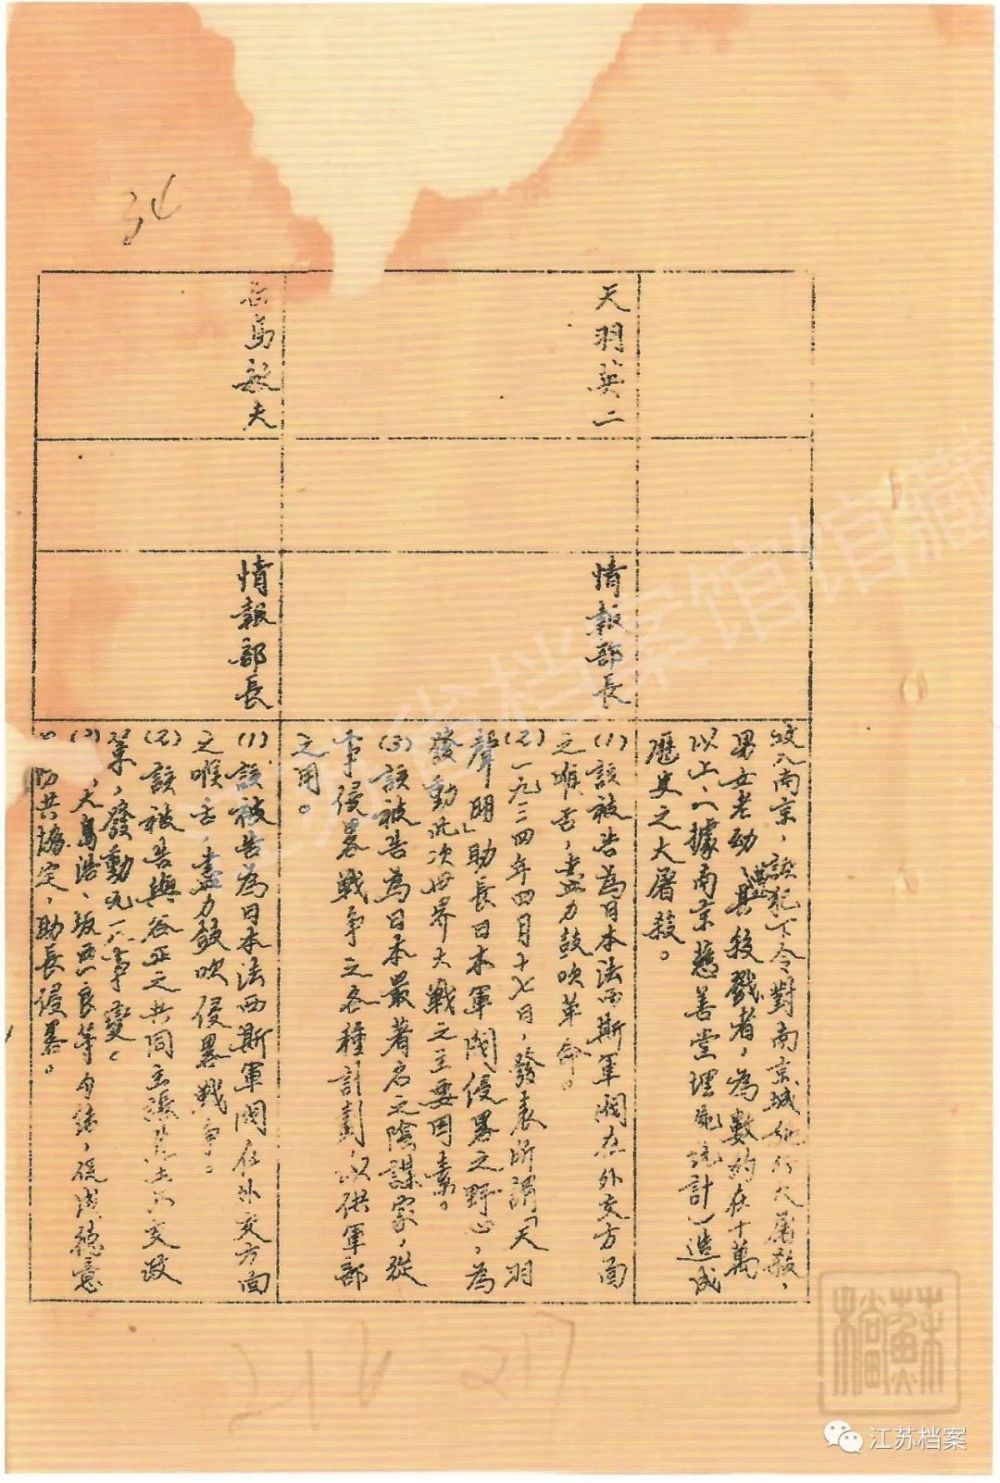 34
攻入南京，該犯下令對南京城外行大屠殺，
男女老幼遭其殺戮者，為數約在十萬
以上，（據南京慈善堂埋屍統計）造成
歷史之大屠殺。
天羽英二
情報部長
(1)該被告為日本法西斯軍閥在外交方面
之喉舌，盡力鼓吹革命。
(2)一九三四年四月十七日，發表所謂「天羽
聲明」助長日本軍閥侵畧之野心，為
發動此次世界大戰之主要因素。
(3)該被告為日本最著名之陰謀家，從
事侵畧戰爭之各種計劃，以供軍部
之用。
敏夫
情報部長
(1)該被告為日本法西斯軍閥在外交方面
之喉舌，盡力鼓吹侵畧戰爭。
(2)該被告與谷正之共同主張 外交政
策，發動九一八事變。
(3) 大島浩、坂西一良等勾結，促成德意
日防共協定，助長侵畧。
216 217
省档案馆馆藏
蘇檔
江苏档案